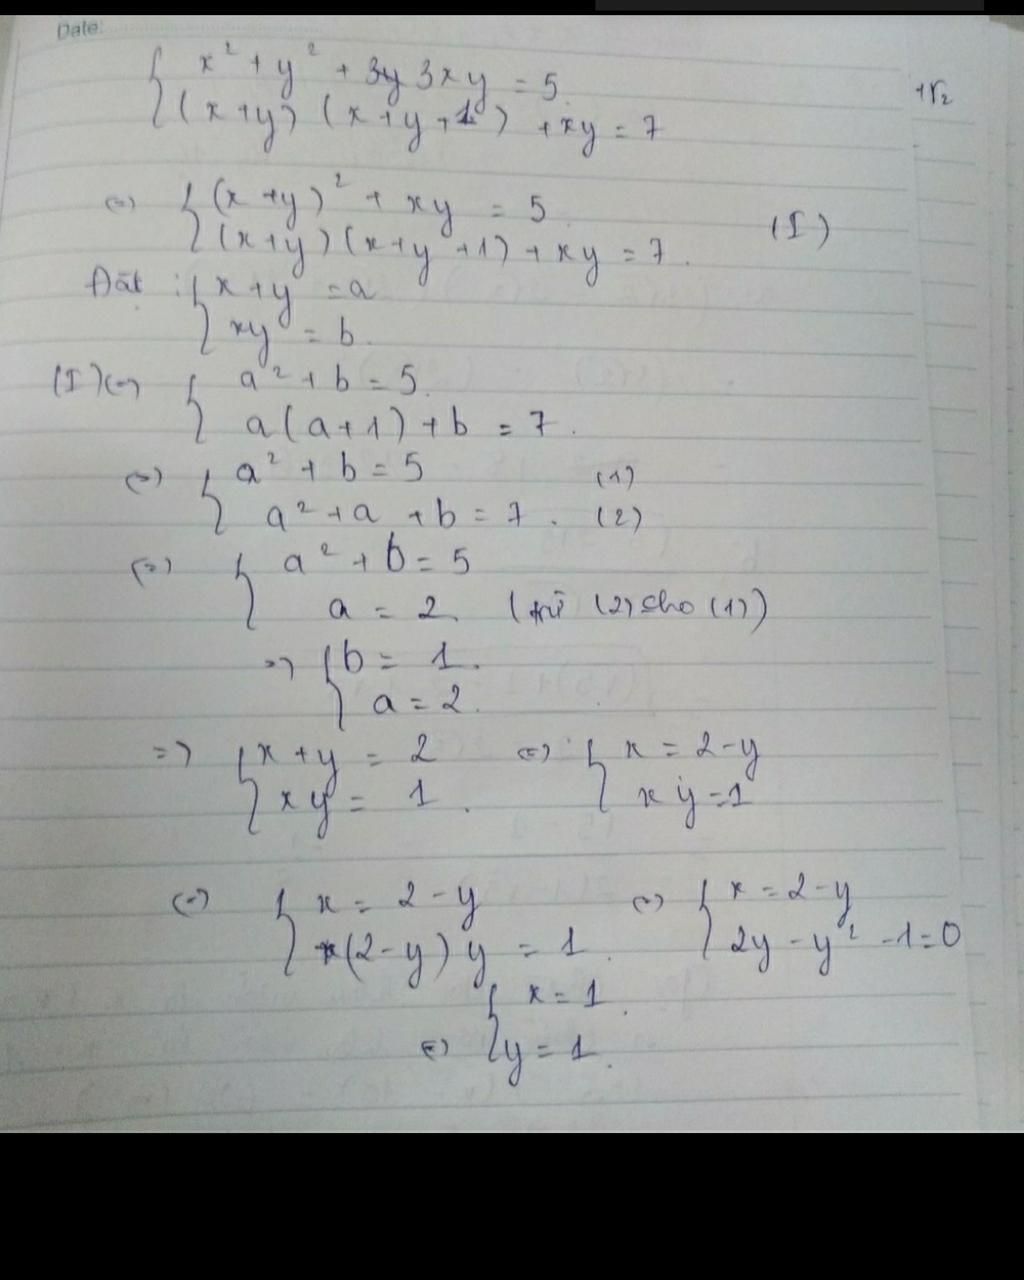 Date:
x² + y² + 3y 3xy = 5.
+r₂
(x+y) (x+y+1) + xy = 7
(=) (x+y)² + xy = 5
(I)
(x+y)(x+y+1) + xy = 7.
Đặt : x+y = a
xy = b.
(I) (=) a² + b = 5.
a(a+1) + b = 7.
(=) a² + b = 5 (1)
a² + a + b = 7. (2)
(=) a² + b = 5
a = 2. (trừ (2) cho (1))
=) b = 1.
a = 2.
=) x + y = 2 (=) x = 2-y
xy = 1. xy = 1
(=) x = 2-y (=) x = 2-y
(2-y) y = 1 2y - y² - 1 = 0
x = 1.
(=) y = 1.